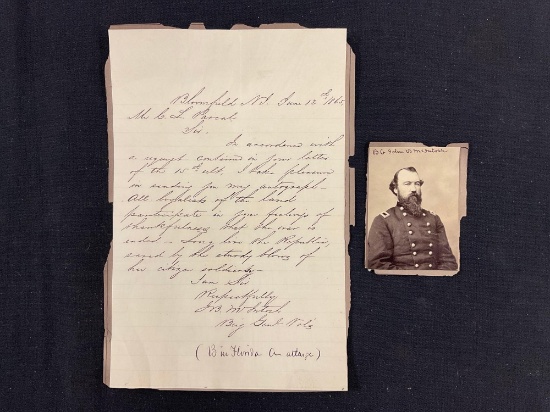 Bloomfield N.J. June 12th 1865
Mr C. L. Pascal
Sir.
In accordance with
a request contained in your letter
of the 15th ult, I take pleasure
in sending you my autograph—
All loyalists of the land
participate in your feelings of
thankfulness that the war is
ended— Long live the Republic,
saved by the sturdy blows of
her citizen soldiery—
I am Sir
Respectfully
J B McIntosh
Brig Genl Vols
(B in Florida
B G John B McIntosh